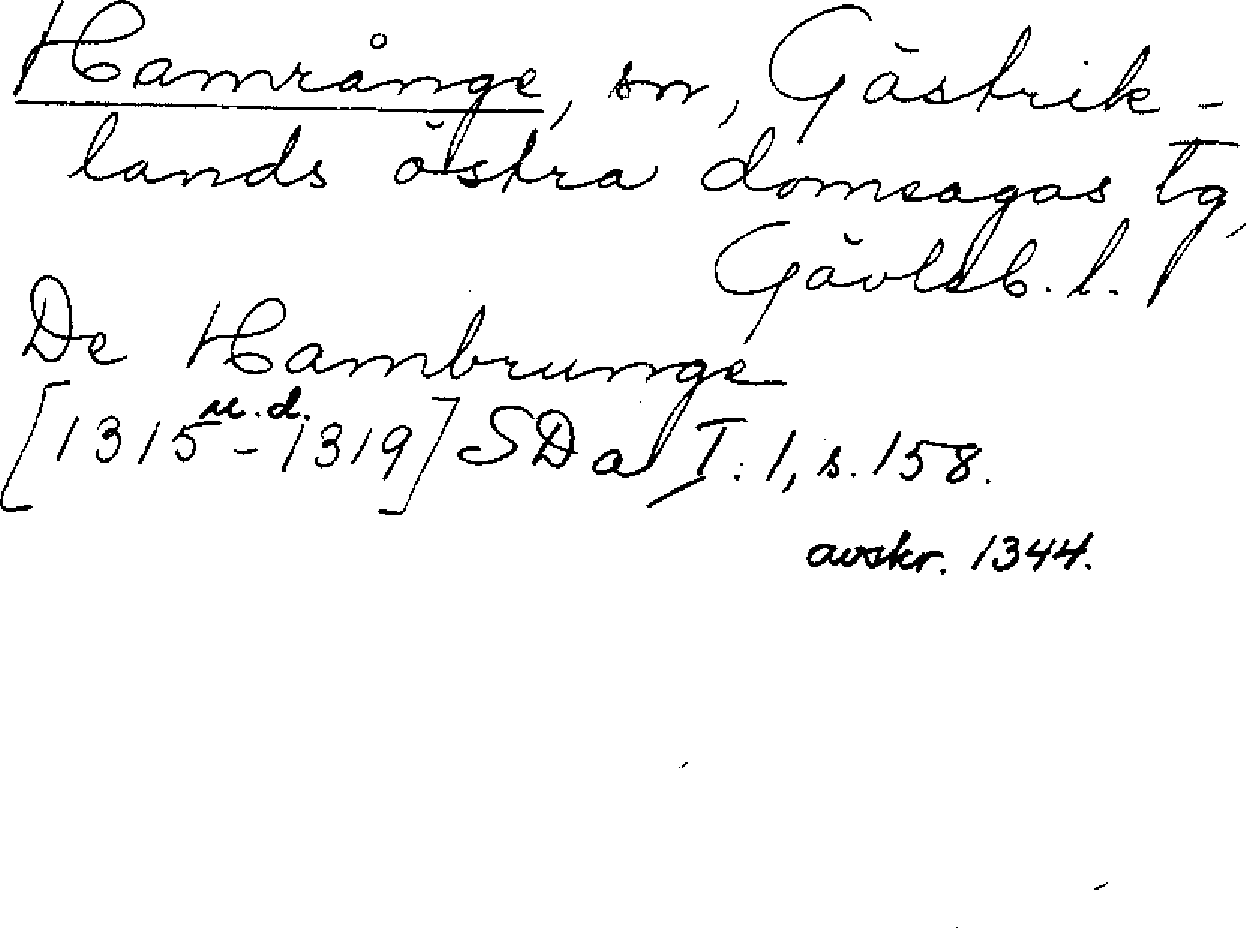 Hamrånge, sn, Gästrik-
lands östra domsagas tg,
Gävleb. l.
De Hambrunge
u.d.
[1315-1319] SDa I:1, s. 158.
avskr. 1344.